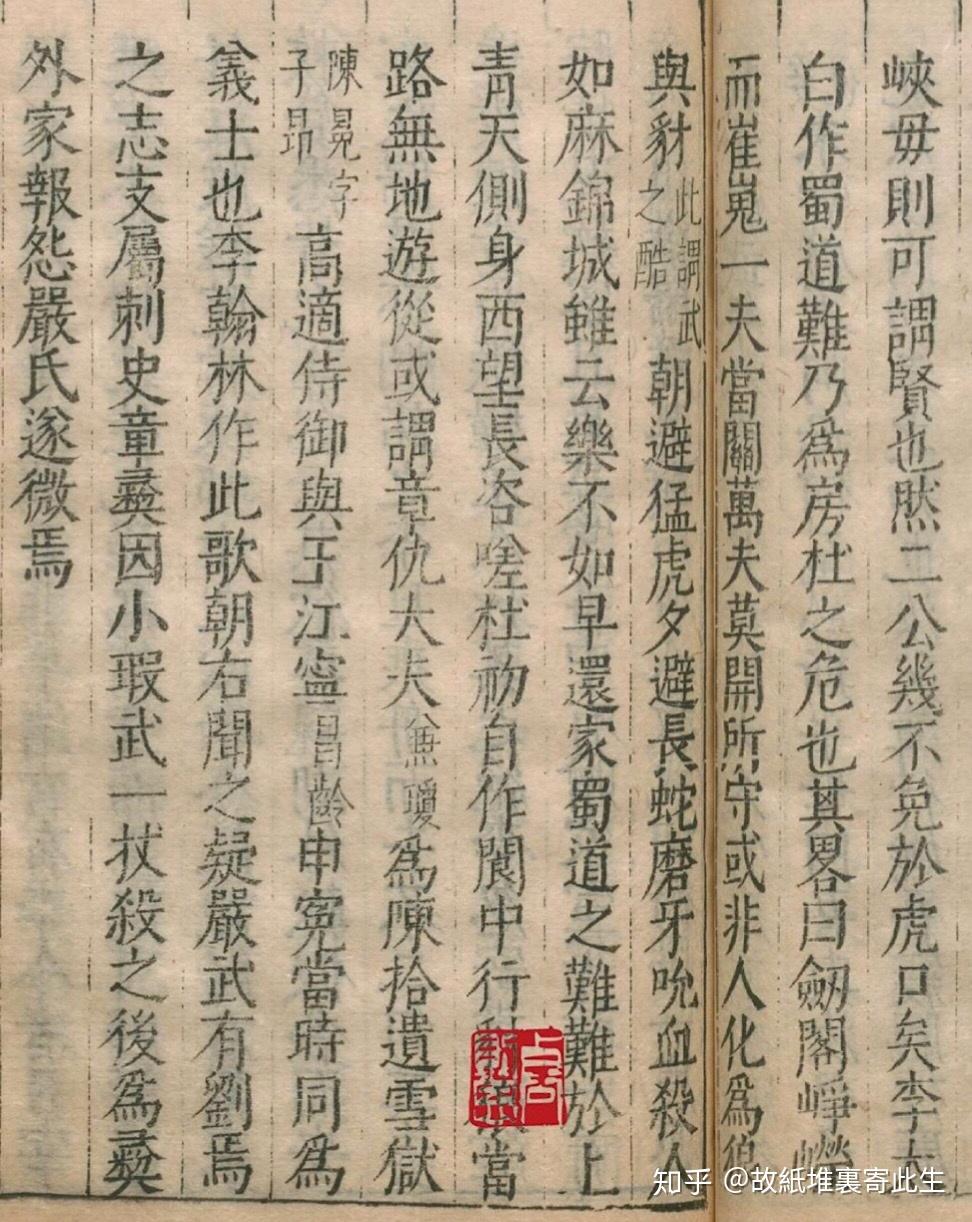 峽毋則可謂賢也然二公幾不免於虎口矣李太
白作蜀道難乃爲房杜之危也其畧曰劒閣崢嶸
而崔嵬一夫當關萬夫莫開所守或非人化爲狼
與豺此謂武之酷朝避猛虎夕避長蛇磨牙吮血殺人
如麻錦城雖云樂不如早還家蜀道之難難於上
青天側身西望長咨嗟杜初自作閬中行豺狼當
路無地遊從或謂章仇大夫兼瓊爲陳拾遺雪獄
陳晃字子昂高適侍御與王江寧昌齡申寃當時同爲
義士也李翰林作此歌朝右聞之疑嚴武有劉焉
之志支屬刺史童彝因小瑕武一杖殺之後爲彝
外家報怨嚴氏遂微焉
知乎 @故紙堆裏寄此生